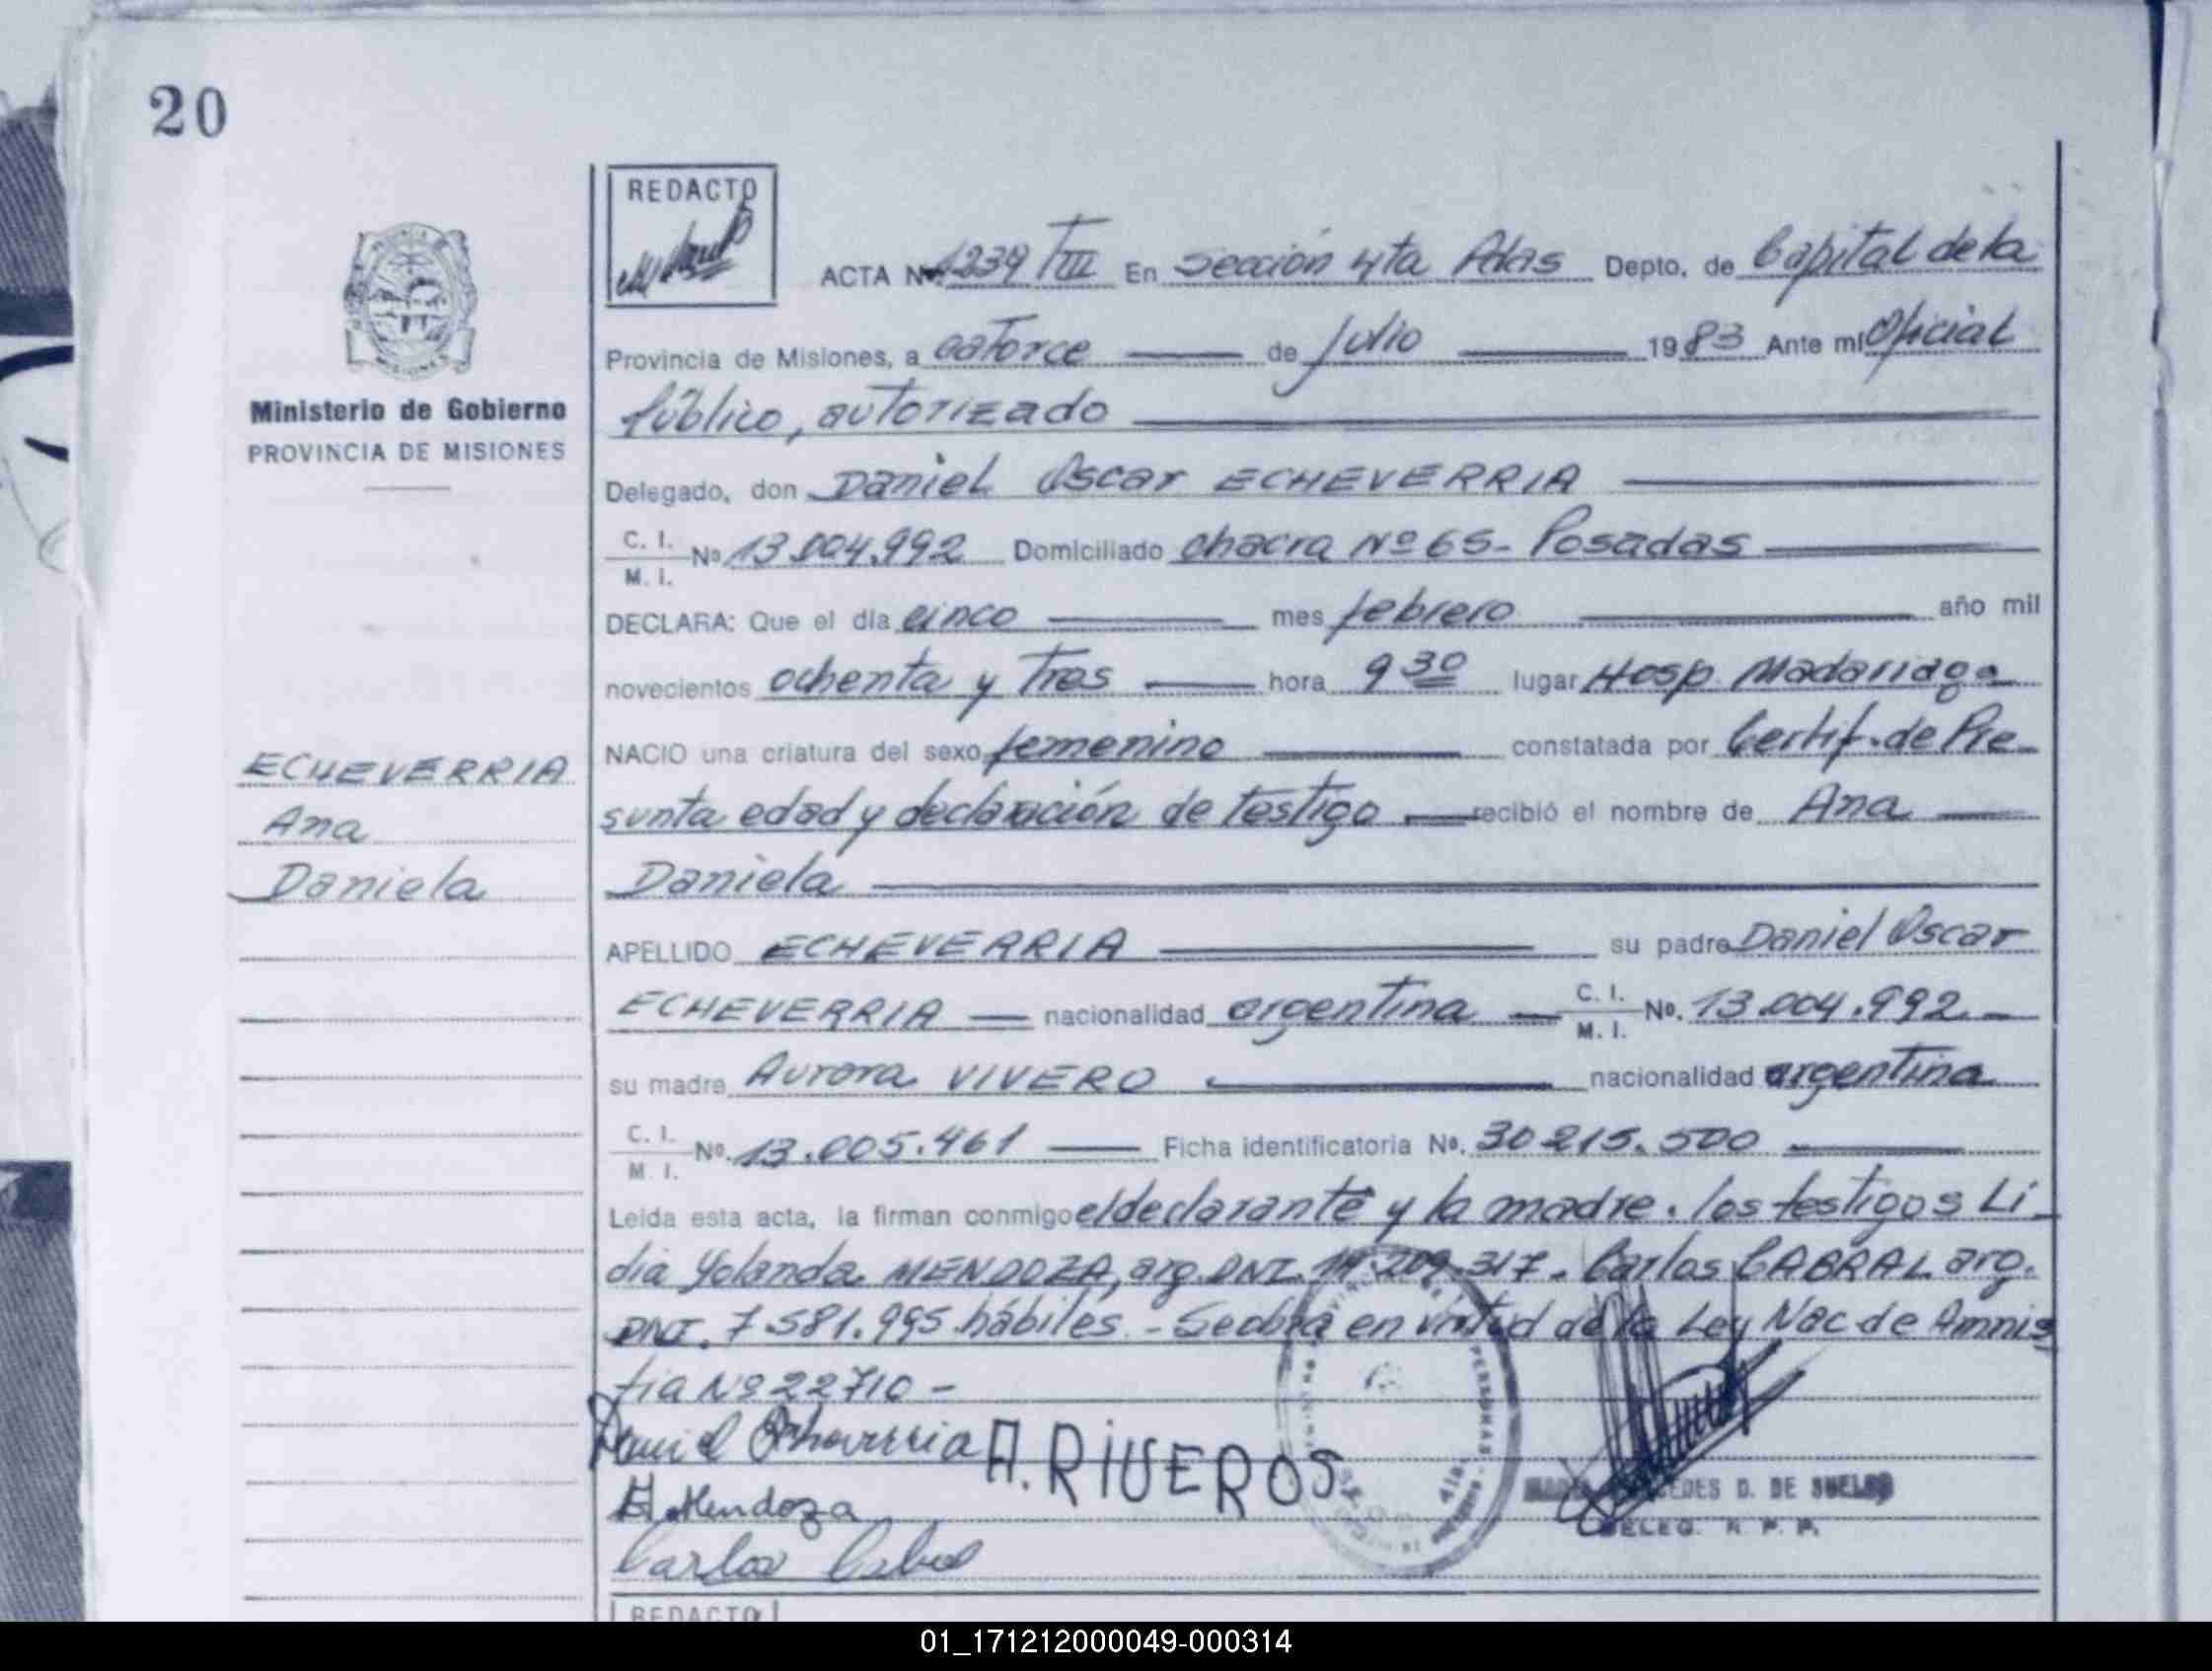 20
REDACTO
ACTA Nº 1239 TIII En Sección 4ta Pdas Depto. de Capital de la
Provincia de Misiones, a catorce de Julio 1983 Ante mí Oficial
Público, autorizado
Ministerio de Gobierno
PROVINCIA DE MISIONES
Delegado, don Daniel Oscar ECHEVERRIA
C. I. M. I. Nº 13.004.992 Domiciliado chacra Nº 65- Posadas
DECLARA: Que el día cinco mes febrero año mil
novecientos ochenta y Tres hora 9 30 lugar Hosp. Madariaga
NACIO una criatura del sexo femenino constatada por Certif. de Pre
sunta edad y declaración de Testigo recibió el nombre de Ana
Daniela
ECHEVERRIA
Ana
Daniela
APELLIDO ECHEVERRIA su padre Daniel Oscar
ECHEVERRIA nacionalidad argentina C. I. M. I. Nº. 13.004.992
su madre Aurora VIVERO nacionalidad argentina
C. I. M. I. Nº. 13.005.461 Ficha identificatoria Nº. 30 215.500
Leída esta acta, la firman conmigo el declarante y la madre. los testigos Li
dia Yolanda MENDOZA, arg. DNI. 209.317. Carlos CABRAL arg.
DNI. 7.581.995 hábiles - Se obra en virtud de la Ley Nac de Amnis
tia Nº 22710 -
Daniel Echeverria A. RIVEROS
Mendoza
Carlos Cabral
PERSONAS
EDES D. DE SUELDO
DELEG. R. P. P.
REDACTO
01_171212000049-000314